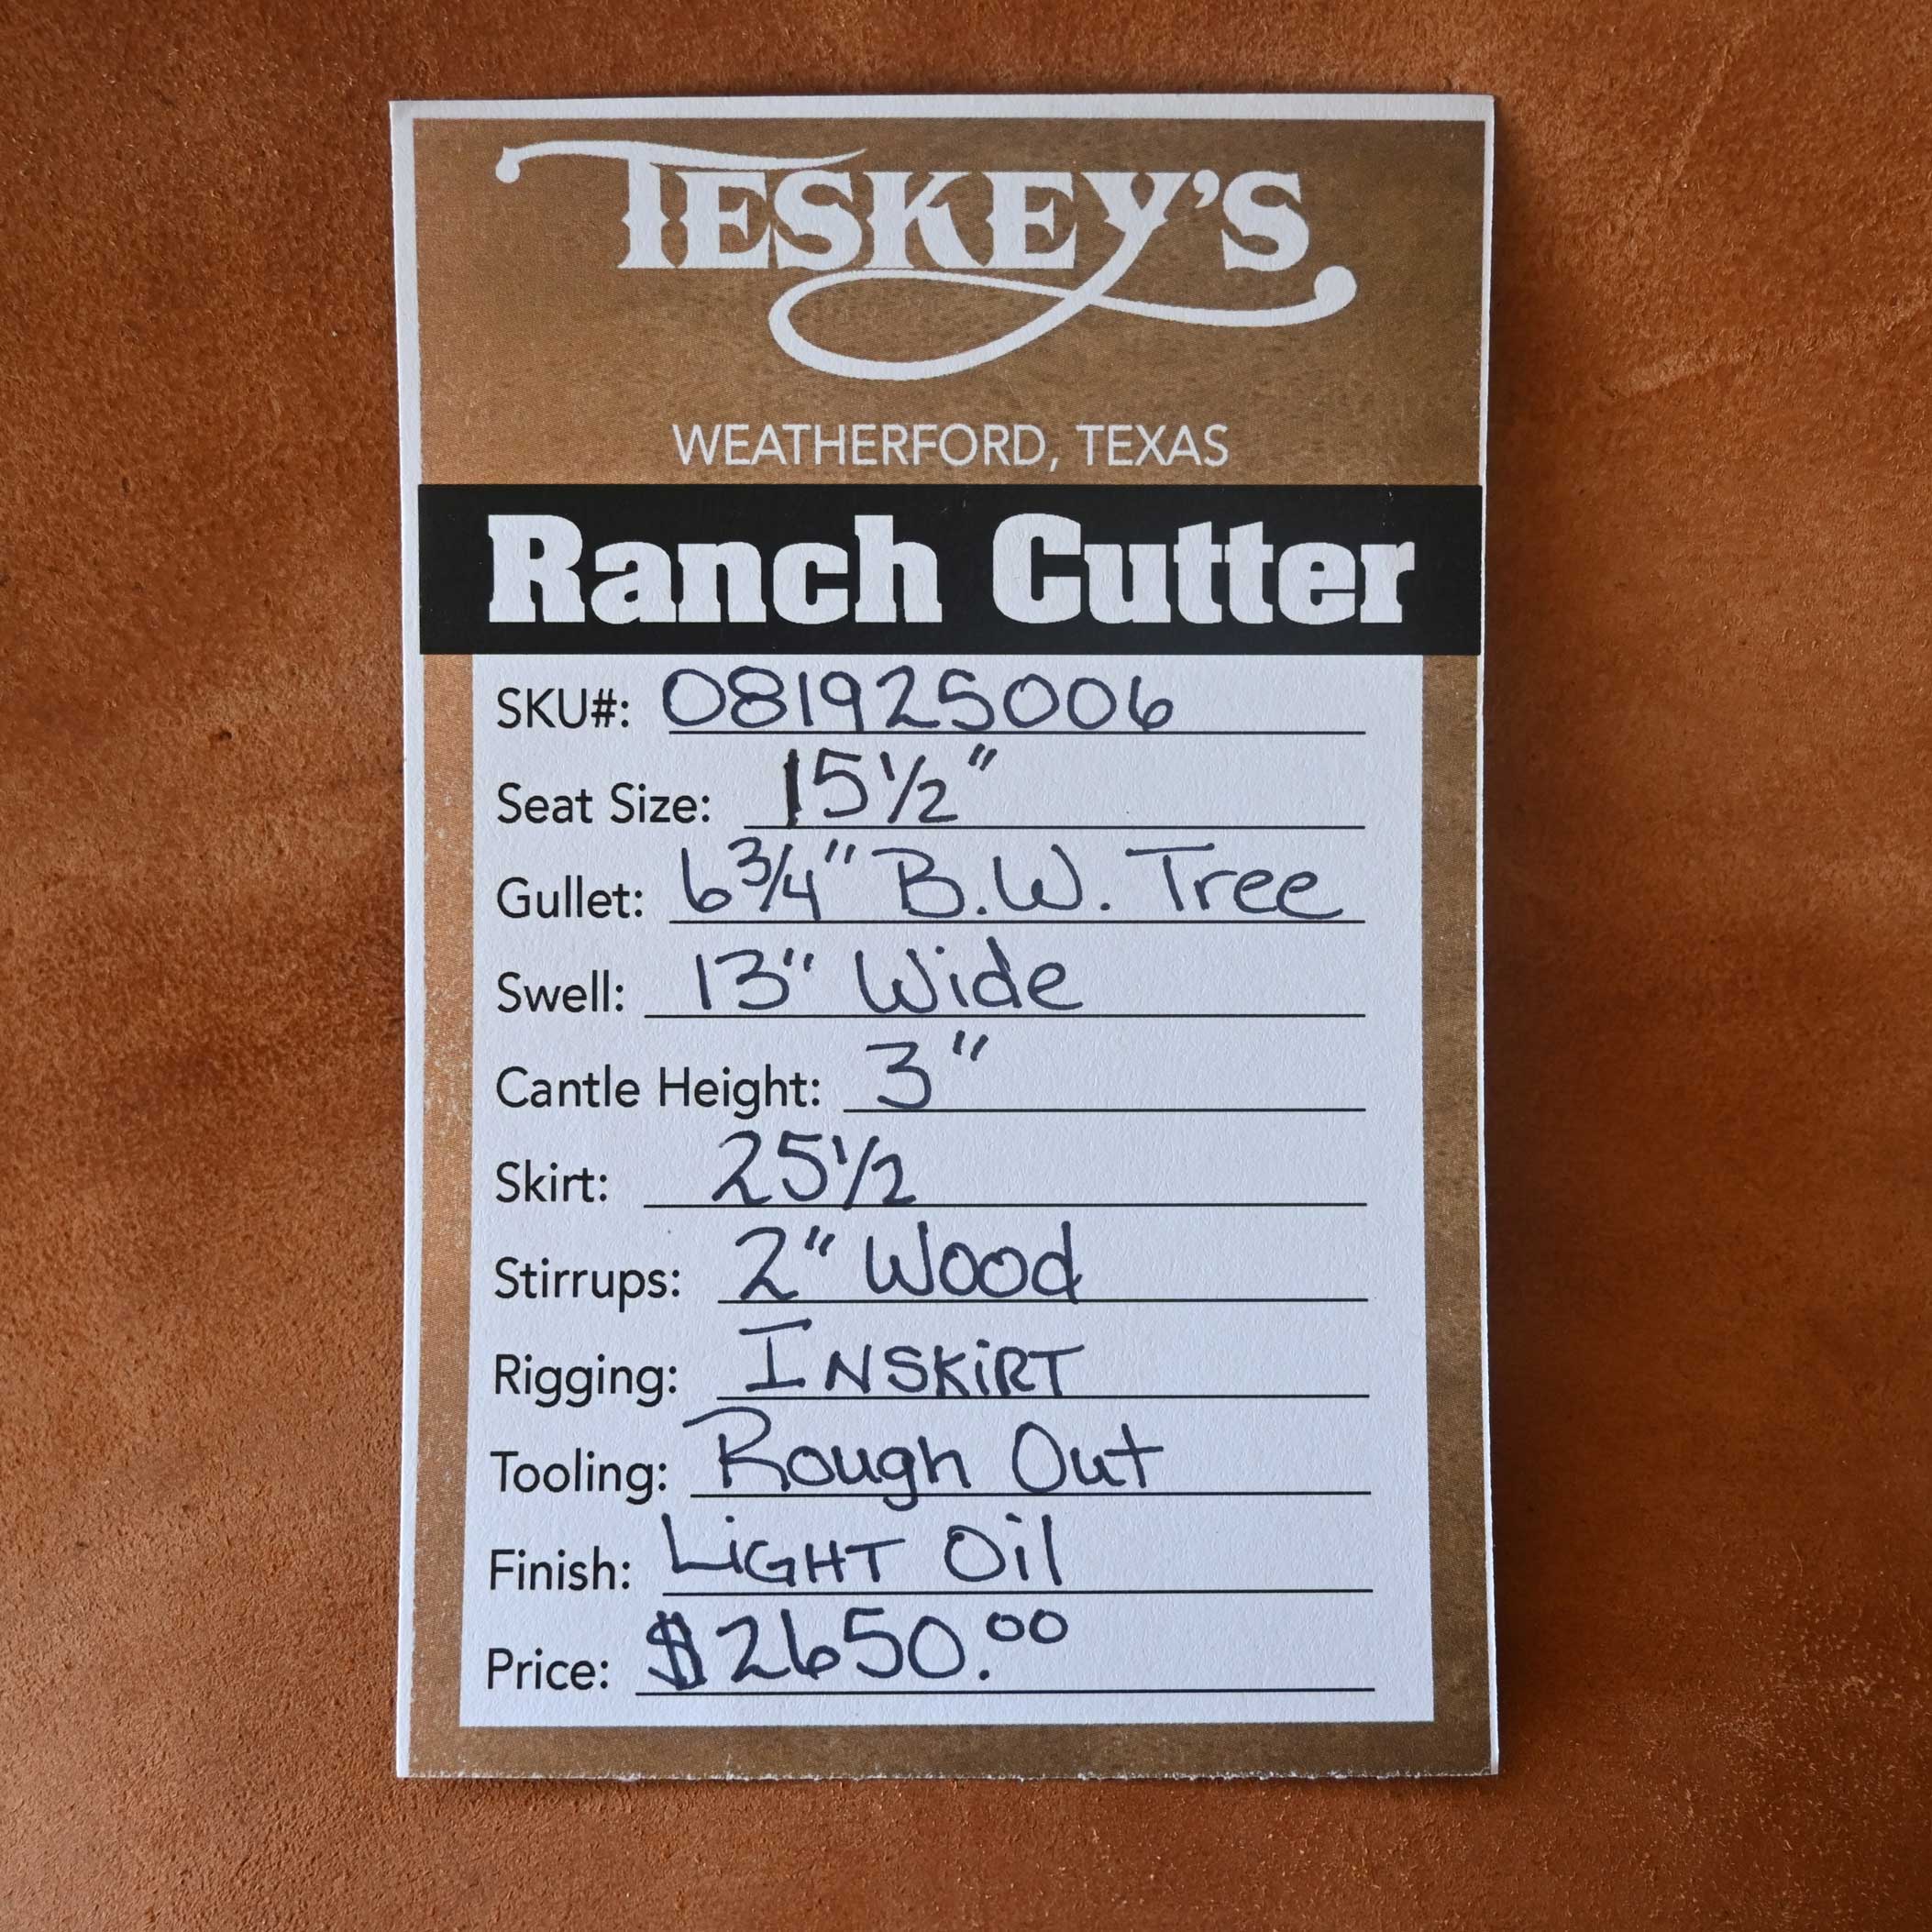 TESKEY'S
WEATHERFORD, TEXAS
Ranch Cutter
SKU#: 081925006
Seat Size: 15 1/2"
Gullet: 6 3/4" B.W. Tree
Swell: 13" Wide
Cantle Height: 3"
Skirt: 25 1/2
Stirrups: 2" Wood
Rigging: INSKiRT
Tooling: Rough Out
Finish: LiGHT Oil
Price: $2650.00